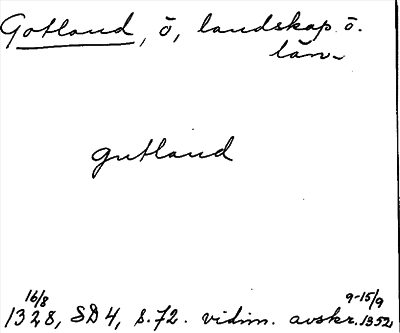 Gotland, ö, landskap ö.
län
gutland
16/8 9-15/9
1328, SD4, s.72. vidim. avskr. 1352